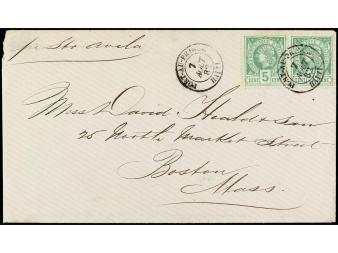 pr Str Avila
PORT-AU-PRINCE
7
HAITI
5
CENT
Mess David Heald & son
25 North Market Street
Boston
Mass.